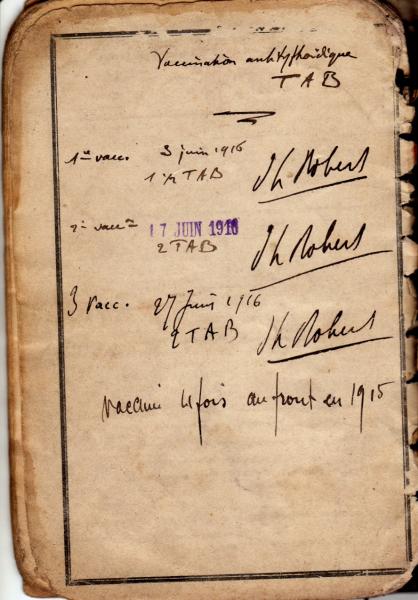 Vaccination antityphoïdique
TAB
1ère vacc. 3 juin 1916
1 1/2 TAB
Robert
2e vacc 17 JUIN 1916
2 TAB
Robert
3 vacc. 27 Juin 1916
2 TAB
Robert
Vacciné 4 fois au front en 1915